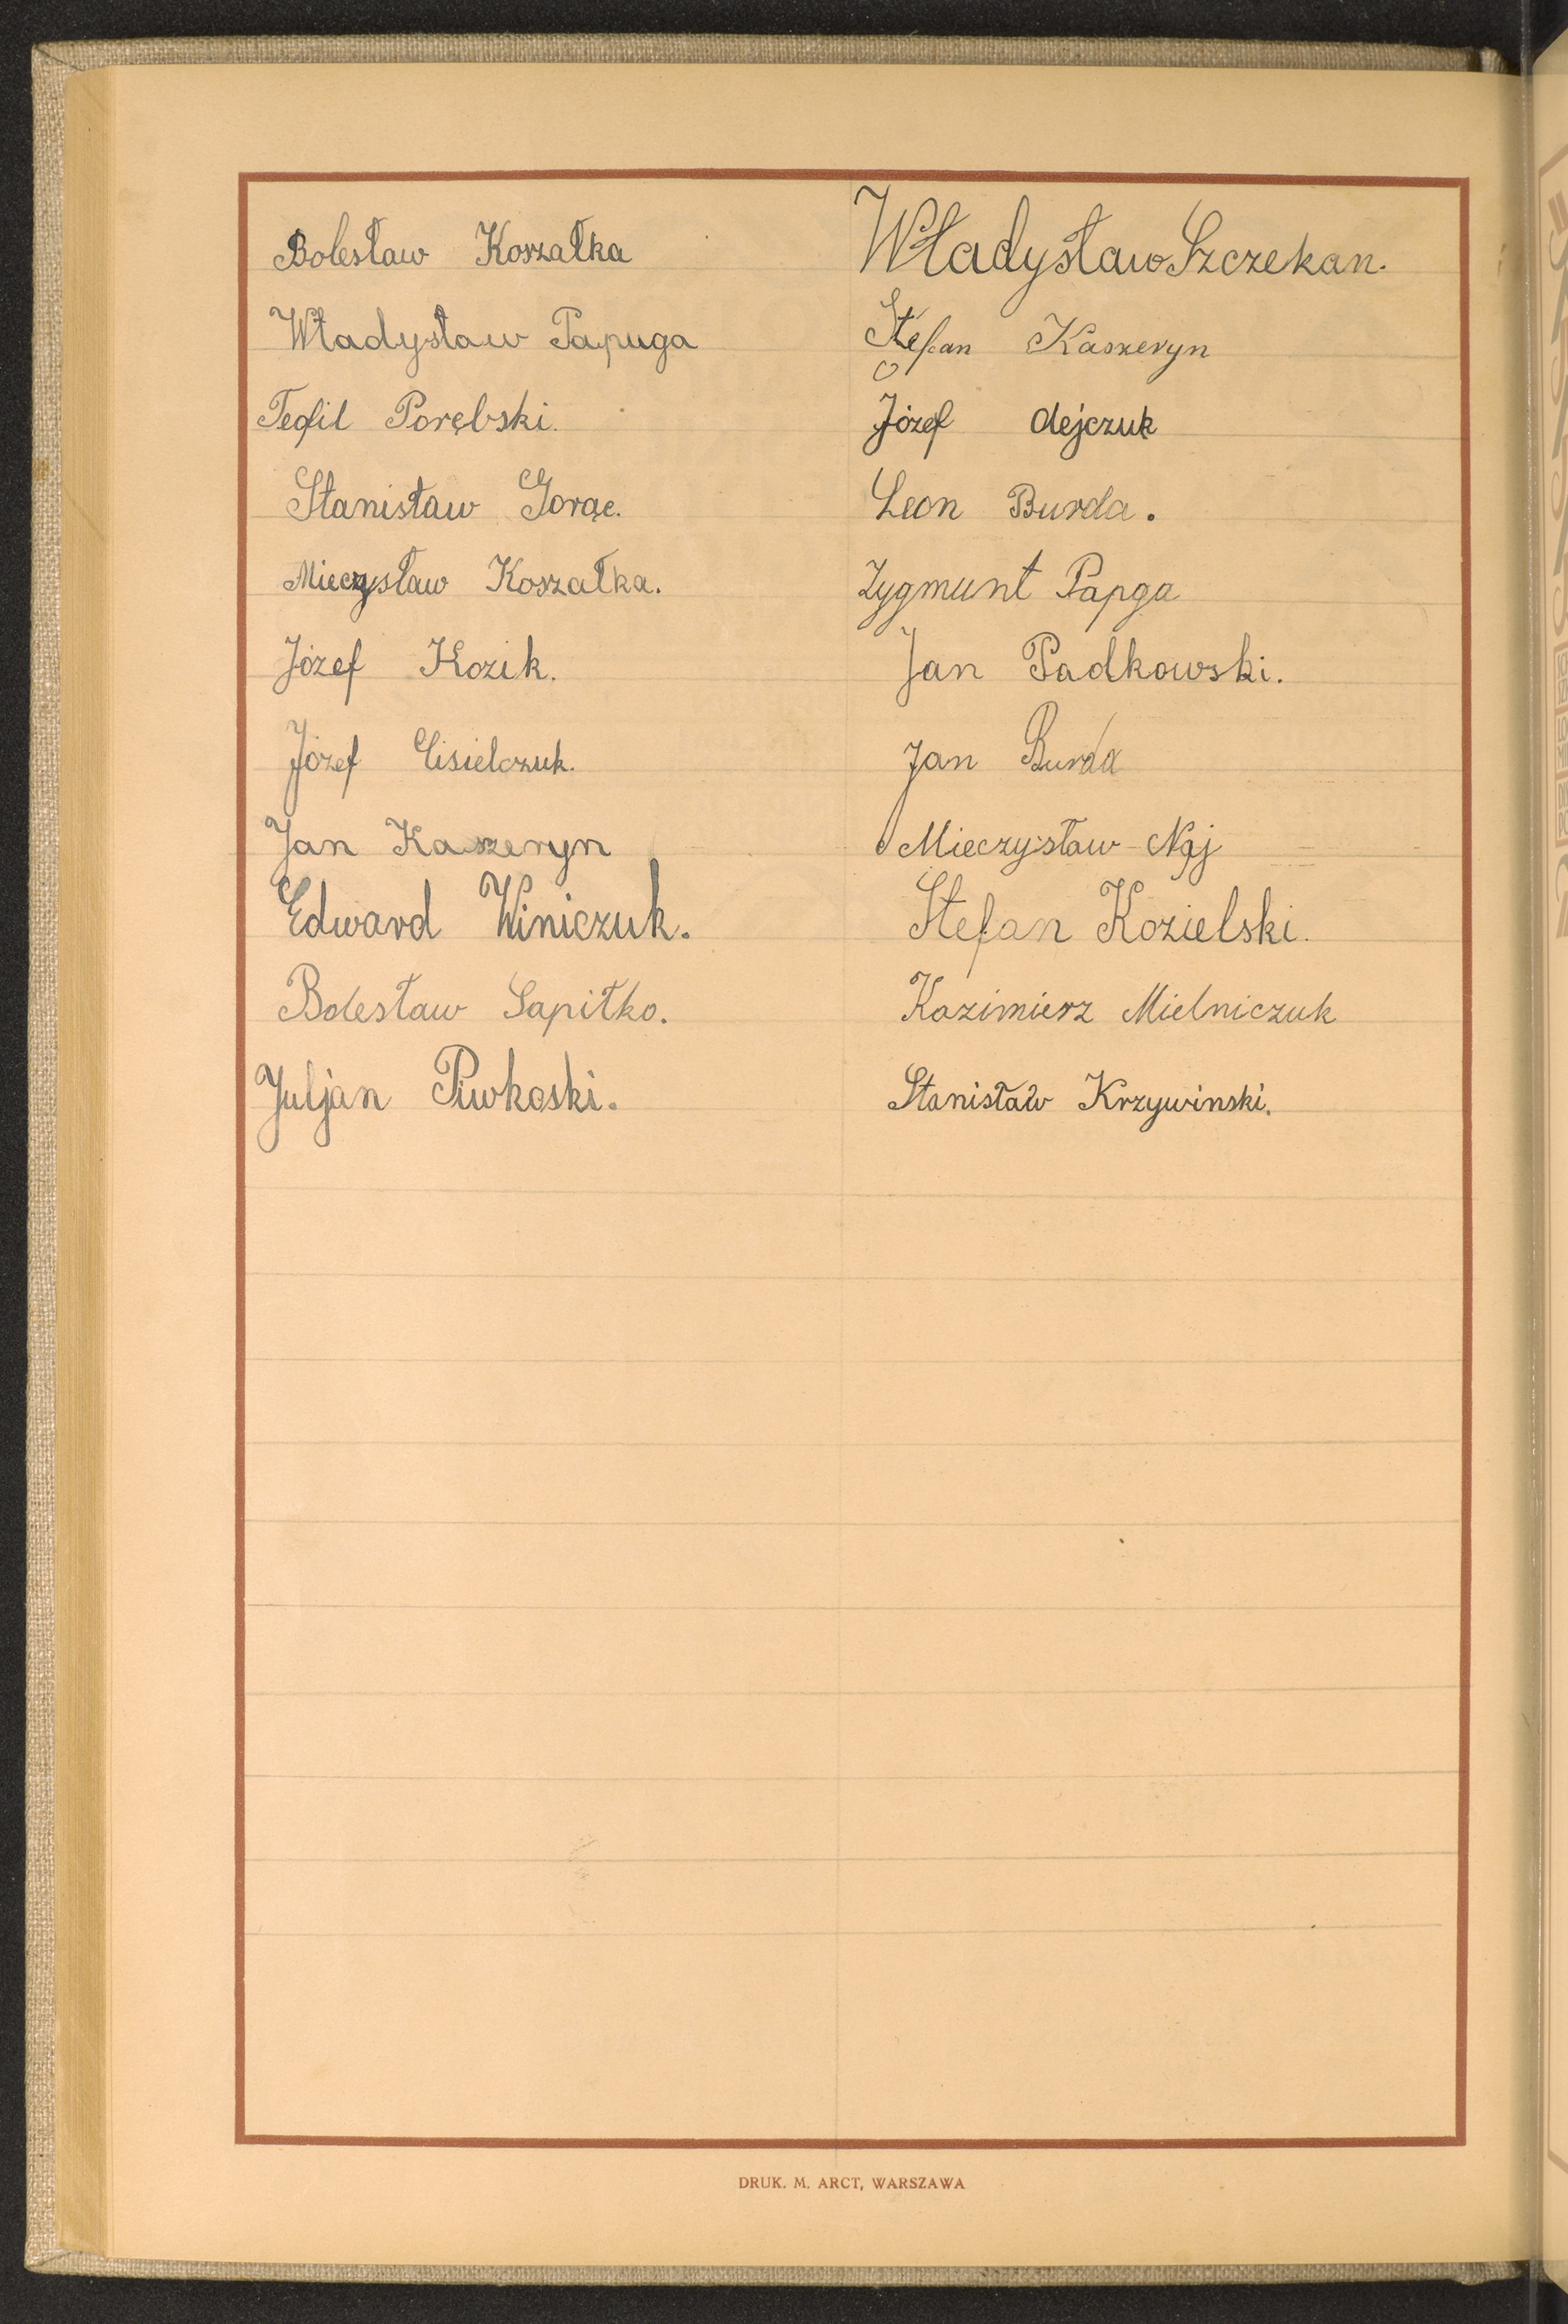 Bolesław Koszałka
Władysław Papuga
Teofil Porębski.
Stanisław Gorąc.
Mieczysław Koszałka.
Józef Kozik.
Józef Cisielczuk.
Jan Kaszeryn
Edward Winiczuk.
Bolesław Sapiłko.
Juljan Piwkoski.
Władysław Szczekan.
Stefan Kaszeryn
Józef Olejczuk
Leon Burda.
Zygmunt Papga
Jan Padkowski.
Jan Burda
Mieczysław Naj
Stefan Kozielski.
Kazimierz Mielniczuk
Stanisław Krzywinski.
DRUK. M. ARCT, WARSZAWA